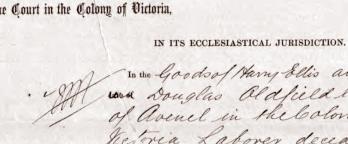 e Court in the Colony of Victoria,
IN ITS ECCLESIASTICAL JURISDICTION.
In the Goods of Harry Ellis
Douglas Oldfield
of Avenel in the Colon
Victoria Laborer decea